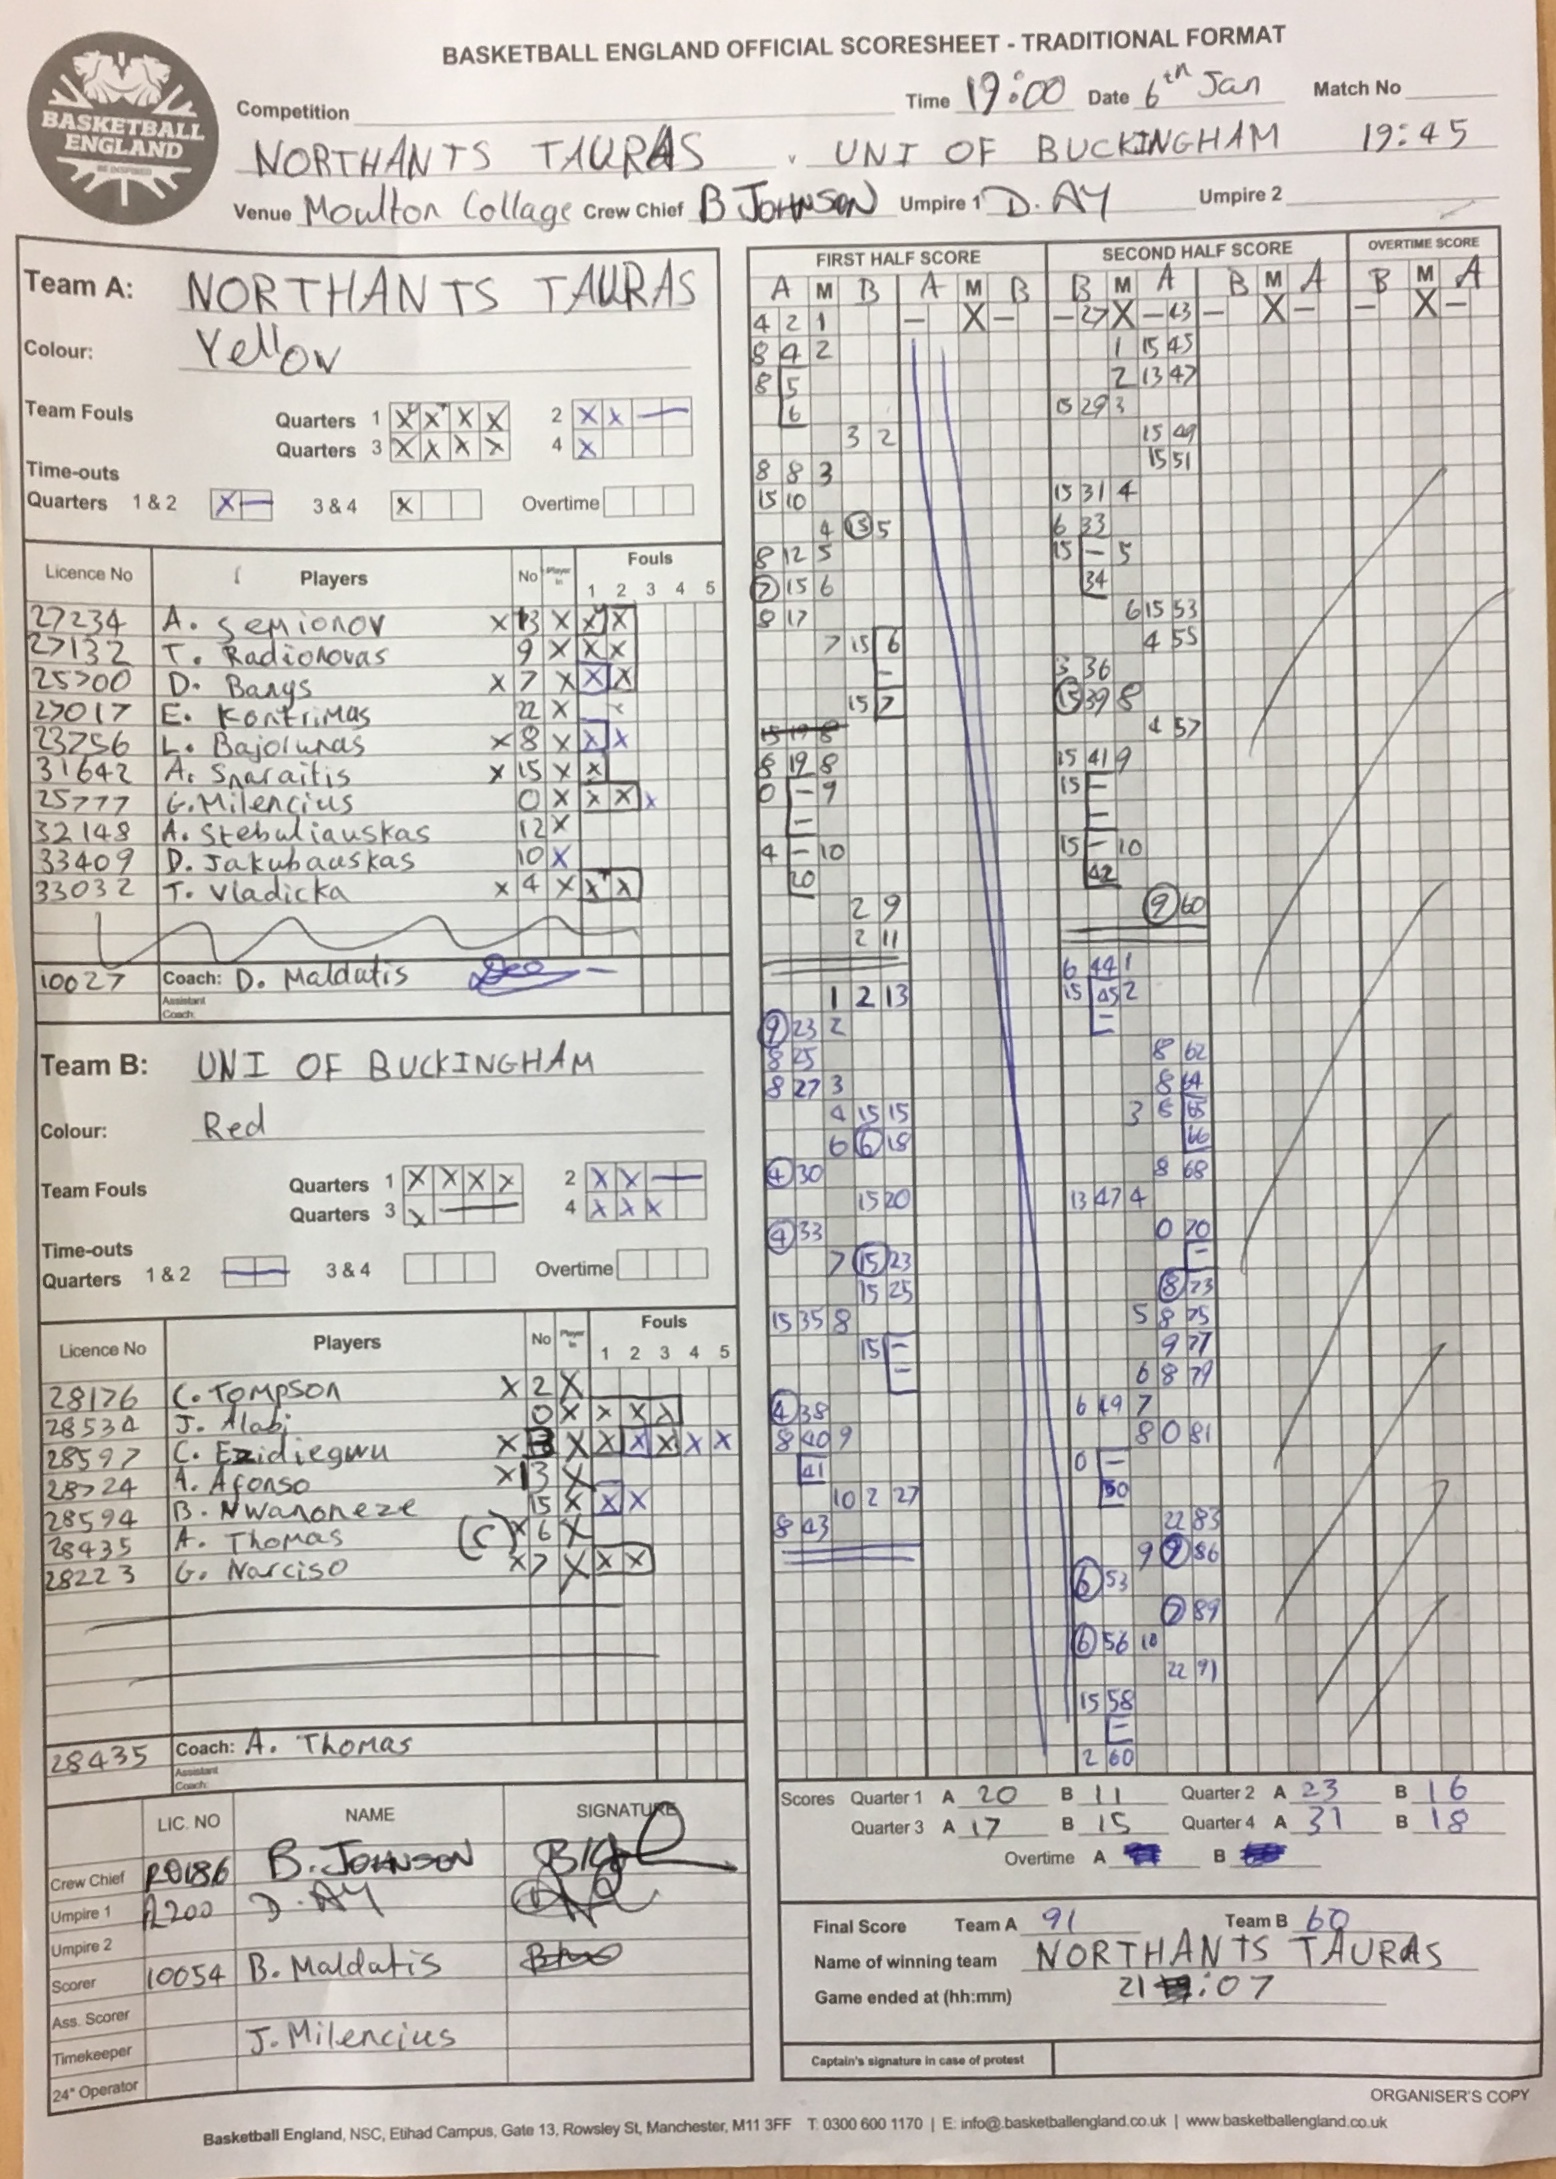 BASKETBALL ENGLAND OFFICIAL SCORESHEET - TRADITIONAL FORMAT
BASKETBALL
ENGLAND
BE INSPIRED
Competition Time 19:00 Date 6th Jan Match No
NORTHANTS TAURAS v. UNI OF BUCKINGHAM 19:45
Venue Moulton Collage Crew Chief B JOHNSON Umpire 1 D. AY Umpire 2
Team A: NORTHANTS TAURAS
Colour: Yellow
Team Fouls Quarters 1 X X X X 2 X X —
Quarters 3 X X X X 4 X
Time-outs
Quarters 1 & 2 X — 3 & 4 X Overtime
Licence No Players No Player in Fouls
1 2 3 4 5
27234 A. Semionov X 13 X X X
27132 T. Radionovas 9 X X X
25700 D. Banys X 7 X X X
27017 E. Kontrimas 22 X
23756 L. Bajolunas X 8 X X X
31642 A. Snaraitis X 15 X X
25777 G. Milencius 0 X X X X
32148 A. Stebuliauskas 12 X
33409 D. Jakubauskas 10 X
33032 T. Vladicka X 4 X X X
10027 Coach: D. Maldatis
Assistant Coach:
Team B: UNI OF BUCKINGHAM
Colour: Red
Team Fouls Quarters 1 X X X X 2 X X —
Quarters 3 X — 4 X X X
Time-outs
Quarters 1 & 2 — 3 & 4 Overtime
Licence No Players No Player in Fouls
1 2 3 4 5
28176 C. Tompson X 2 X
28534 J. Alabi 0 X X X X
28597 C. Ezidiegwu X 3 X X X X X X
28724 A. Afonso X 13 X
28594 B. Nwanoneze 15 X X X
28435 A. Thomas (C) X 6 X
28223 G. Narciso X 7 X X X
28435 Coach: A. Thomas
Assistant Coach:
LIC. NO NAME SIGNATURE
Crew Chief R0186 B. JOHNSON
Umpire 1 R200 D. AY
Umpire 2
Scorer 10054 B. Maldatis
Ass. Scorer
Timekeeper J. Milencius
24" Operator
FIRST HALF SCORE
A M B A M B
4 2 1 — X —
8 4 2
8 5
6
3 2
8 8 3
15 10
4 15 5
8 12 5
7 15 6
8 17
7 15 6
—
15 7
15 19 8
8 19 8
0 — 9
—
4 — 10
20
2 9
2 11
1 2 13
9 23 2
8 25
8 27 3
4 15 15
6 6 18
4 30
15 20
4 33
7 15 23
15 25
15 35 8
15 —
—
4 38
8 40 9
41
10 2 27
8 43
SECOND HALF SCORE
B M A B M A
— 27 X — 43 — X —
1 15 45
2 13 47
15 29 3
15 49
15 51
15 31 4
6 33
15 — 5
34
6 15 53
4 55
3 36
15 39 8
4 57
15 41 9
15 —
—
15 — 10
42
9 60
6 44 1
15 45 2
—
8 62
8 64
3 8 65
66
8 68
13 47 4
0 70
—
8 73
5 8 75
9 77
6 8 79
6 49 7
8 0 81
0 —
50
22 83
9 9 86
6 53
7 89
6 56 10
22 91
15 58
—
2 60
OVERTIME SCORE
B M A
— X —
Scores Quarter 1 A 20 B 11 Quarter 2 A 23 B 16
Quarter 3 A 17 B 15 Quarter 4 A 31 B 18
Overtime A B
Final Score Team A 91 Team B 60
Name of winning team NORTHANTS TAURAS
Game ended at (hh:mm) 21:07
Captain's signature in case of protest
ORGANISER'S COPY
Basketball England, NSC, Etihad Campus, Gate 13, Rowsley St, Manchester, M11 3FF T: 0300 600 1170 | E: info@.basketballengland.co.uk | www.basketballengland.co.uk